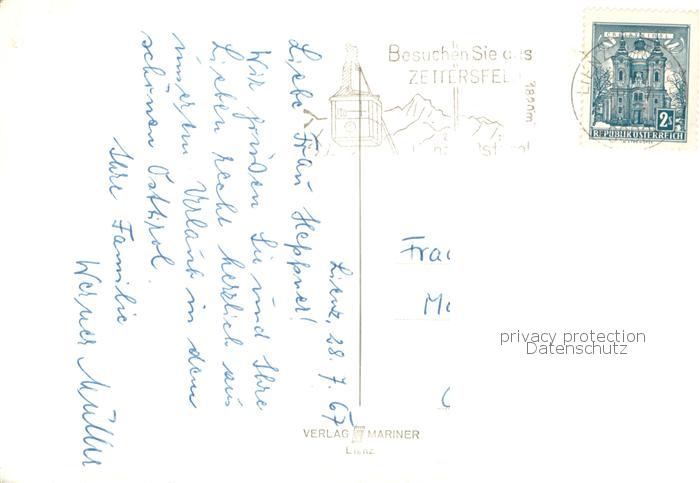 Lienz, 28. 7. 67
Liebe Frau Heppner!
Wir grüßen Sie und Ihre
Lieben recht herzlich aus
unserem Urlaub in dem
schönen Osttirol.
Ihre Familie
Werner Müller
Besuchen Sie das
ZETTERSFELD
1820m
CHRISTKINDL
2S
REPUBLIK ÖSTERREICH
Frau
privacy protection
Datenschutz
VERLAG MARINER
LIENZ